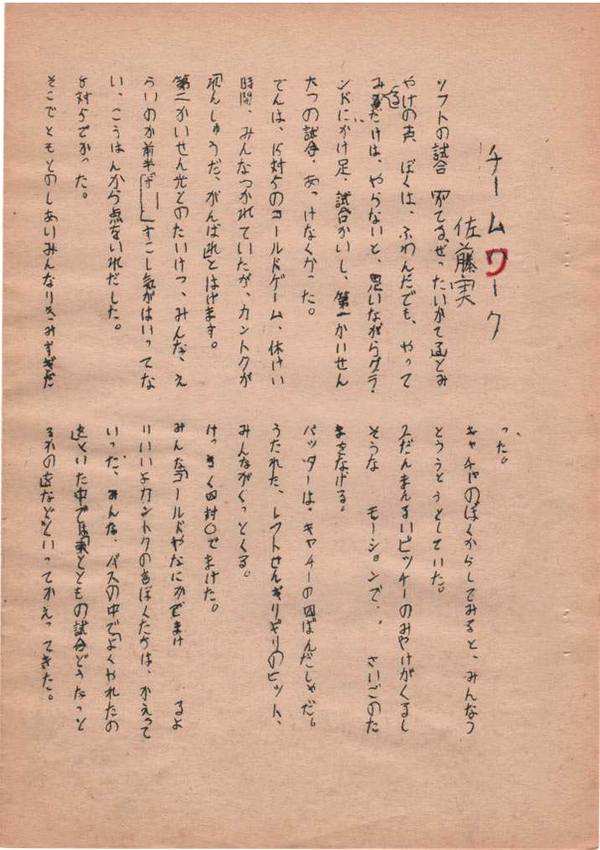 チームワーク
佐藤実
ソフトの試合「かてる、ぜったいかてる」とみ
やけの声、ぼくは、ふあんだでも、やって
みるだけは、やらないと、思いながらグラ
ンドにかけ足、試合かいし、第一かいせん
たつの試合、あっけなくかった。
でんは、15対5のコールドゲーム、休けい
時間、みんなつかれていたが、カントクが
「れんしゅうだ、がんばれ」とはげます。
第二かいせん光とのたいけつ、みんな、え
ういのか前半が すこし気がはいってな
い、こうはんから点をいれだした。
対5でかった。
そこでともとのしあいみんなりきみすぎだ
った。
キャチャのぼくからしてみると、みんなう
とうとうとしていた。
2だんまえるいピッチーのみやけがくるし
そうな モーションで、、さいごのた
まをなげる。
バッターは、キャチーの四ばんだしゃだ。
うたれた、レフトせんギリギリのヒット、
みんながくっとくる。
けっきょく四対〇でまけた。
みんな「コールドやなにかでまけ るよ
りいいよ」カントクの声ぼくたちは、かえって
いった、みんな、バスの中で「よくやれたの
」といった中では「実とともの試合どうなっと
るかの」などといってかえってきた。